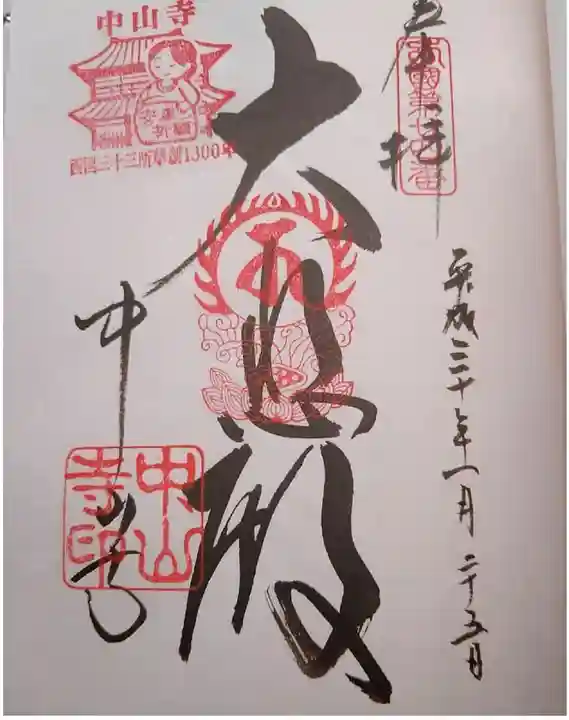 奉拝
西国第廿四番
平成三十年一月二十五日
大悲殿
中山寺
西国三十三所草創1300年
安産
祈願
中山寺
中山寺印